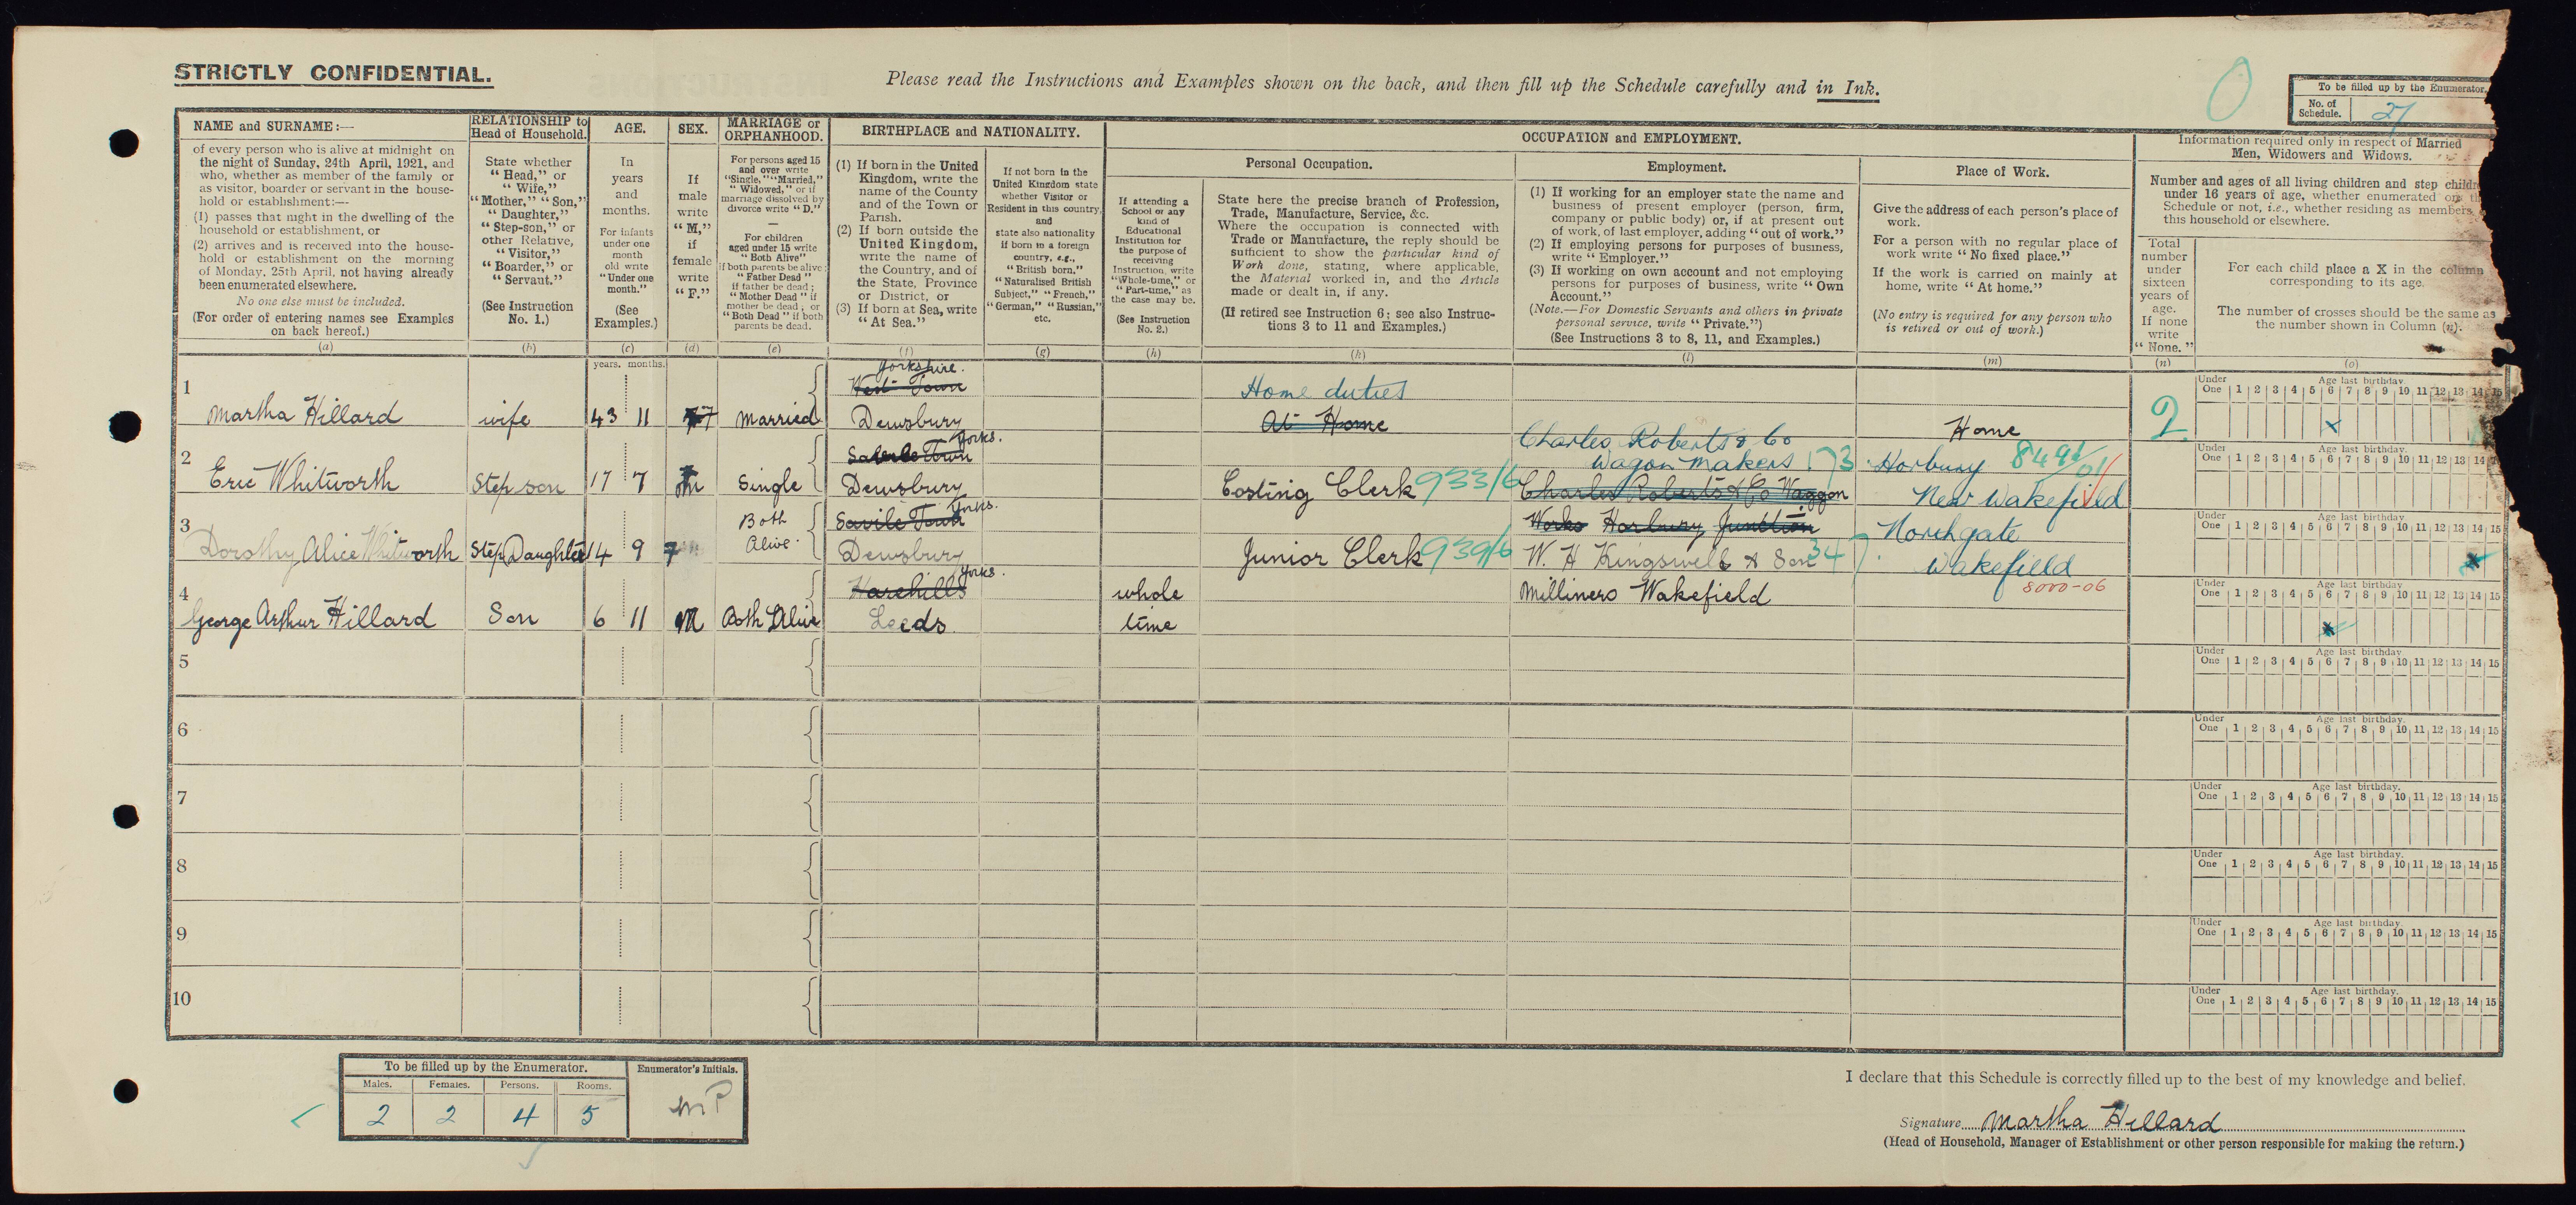 STRICTLY CONFIDENTIAL.
Please read the Instructions and Examples shown on the back, and then fill up the Schedule carefully and in Ink.
To be filled up by the Enumerator.
No. of Schedule. 27
NAME and SURNAME:—
of every person who is alive at midnight on
the night of Sunday, 24th April, 1921, and
who, whether as member of the family or
as visitor, boarder or servant in the house-
hold or establishment:—
(1) passes that night in the dwelling of the
household or establishment, or
(2) arrives and is received into the house-
hold or establishment on the morning
of Monday, 25th April, not having already
been enumerated elsewhere.
No one else must be included.
(For order of entering names see Examples
on back hereof.)
(a)
RELATIONSHIP to
Head of Household.
State whether
"Head," or
"Wife,"
"Mother," "Son,"
"Daughter,"
"Step-son," or
other Relative,
"Visitor,"
"Boarder," or
"Servant."
(See Instruction
No. 1.)
(b)
AGE.
In
years
and
months.
For infants
under one
month
old write
"Under one
month."
(See
Examples.)
(c)
years. months.
SEX.
If
male
write
"M,"
if
female
write
"F."
(d)
MARRIAGE or
ORPHANHOOD.
For persons aged 15
and over write
"Single," "Married,"
"Widowed," or if
marriage dissolved by
divorce write "D."
For children
aged under 15 write
"Both Alive"
if both parents be alive;
"Father Dead"
if father be dead;
"Mother Dead" if
mother be dead; or
"Both Dead" if both
parents be dead.
(e)
BIRTHPLACE and NATIONALITY.
(1) If born in the United
Kingdom, write the
name of the County
and of the Town or
Parish.
(2) If born outside the
United Kingdom,
write the name of
the Country, and of
the State, Province
or District, or
(3) If born at Sea, write
"At Sea."
(f)
If not born in the
United Kingdom state
whether Visitor or
Resident in this country,
and
state also nationality
if born in a foreign
country, e.g.,
"British born,"
"Naturalised British
Subject," "French,"
"German," "Russian,"
etc.
(g)
OCCUPATION and EMPLOYMENT.
If attending a
School or any
kind of
Educational
Institution for
the purpose of
receiving
Instruction, write
"Whole-time," or
"Part-time," as
the case may be.
(See Instruction
No. 2.)
(h)
Personal Occupation.
State here the precise branch of Profession,
Trade, Manufacture, Service, &c.
Where the occupation is connected with
Trade or Manufacture, the reply should be
sufficient to show the particular kind of
Work done, stating, where applicable,
the Material worked in, and the Article
made or dealt in, if any.
(If retired see Instruction 6; see also Instruc-
tions 3 to 11 and Examples.)
(k)
Employment.
(1) If working for an employer state the name and
business of present employer (person, firm,
company or public body) or, if at present out
of work, of last employer, adding "out of work."
(2) If employing persons for purposes of business,
write "Employer."
(3) If working on own account and not employing
persons for purposes of business, write "Own
Account."
(Note.—For Domestic Servants and others in private
personal service, write "Private.")
(See Instructions 3 to 8, 11, and Examples.)
(l)
Place of Work.
Give the address of each person's place of
work.
For a person with no regular place of
work write "No fixed place."
If the work is carried on mainly at
home, write "At home."
(No entry is required for any person who
is retired or out of work.)
(m)
Information required only in respect of Married
Men, Widowers and Widows.
Number and ages of all living children and step
under 16 years of age, whether enumerated on
Schedule or not, i.e., whether residing as members
this household or elsewhere.
Total
number
under
sixteen
years of
age.
If none
write
"None."
(n)
For each child place a X in the column
corresponding to its age.
The number of crosses should be the same as
the number shown in Column (n).
(o)
1 Martha Hillard wife 43 11 F Married Yorkshire. West Town Dewsbury Home duties At Home Home 2
Under One 1 2 3 4 5 6 7 8 9 10 11 12 13 14 15 Age last birthday. X
2 Eric Whitworth Step son 17 7 M Single Yorks. Savile Town Dewsbury Costing Clerk 933/6 Charles Roberts & Co Wagon makers 173 Charles Roberts & Co Waggon Works Horbury Junction Horbury Near Wakefield
Under One 1 2 3 4 5 6 7 8 9 10 11 12 13 14 Age last birthday.
3 Dorothy Alice Whitworth Step Daughter 14 9 F Both Alive. Yorks. Savile Town Dewsbury Junior Clerk 939/6 W. H Kingswell & Son Milliners Wakefield 347 Northgate Wakefield 8000-06
Under One 1 2 3 4 5 6 7 8 9 10 11 12 13 14 15 Age last birthday. X
4 George Arthur Hillard Son 6 11 M Both Alive Yorks. Harehills Leeds whole time
Under One 1 2 3 4 5 6 7 8 9 10 11 12 13 14 15 Age last birthday. X
5
Under One 1 2 3 4 5 6 7 8 9 10 11 12 13 14 15 Age last birthday.
6
Under One 1 2 3 4 5 6 7 8 9 10 11 12 13 14 15 Age last birthday.
7
Under One 1 2 3 4 5 6 7 8 9 10 11 12 13 14 15 Age last birthday.
8
Under One 1 2 3 4 5 6 7 8 9 10 11 12 13 14 15 Age last birthday.
9
Under One 1 2 3 4 5 6 7 8 9 10 11 12 13 14 15 Age last birthday.
10
Under One 1 2 3 4 5 6 7 8 9 10 11 12 13 14 15 Age last birthday.
To be filled up by the Enumerator. Enumerator's Initials.
Males. Females. Persons. Rooms.
2 2 4 5 MP
I declare that this Schedule is correctly filled up to the best of my knowledge and belief.
Signature Martha Hillard
(Head of Household, Manager of Establishment or other person responsible for making the return.)